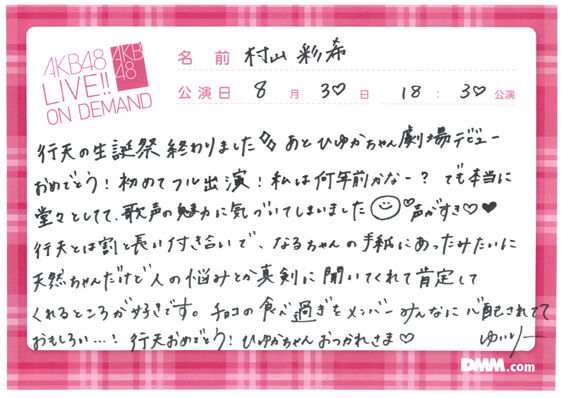 AKB48
LIVE!!
ON DEMAND
AKB
48
名前 村山 彩希
公演日 8月30日 18:30公演
行天の生誕祭終わりました あとひゆかちゃん劇場デビュー
おめでとう!初めてフル出演!私は何年前かなー?でも本当に
堂々としてて、歌声の魅力に気づいてしまいました 声がすき♡♥
行天とは割と長い付き合いで、なるちゃんの手紙にあったみたいに
天然ちゃんだけど人の悩みとか真剣に聞いてくれて肯定して
くれるところが好きです。チョコの食べ過ぎをメンバーみんなに心配されてて
おもしろい…!行天おめでとう!ひゆかちゃんおつかれさま♡ ゆいりー
DMM.com